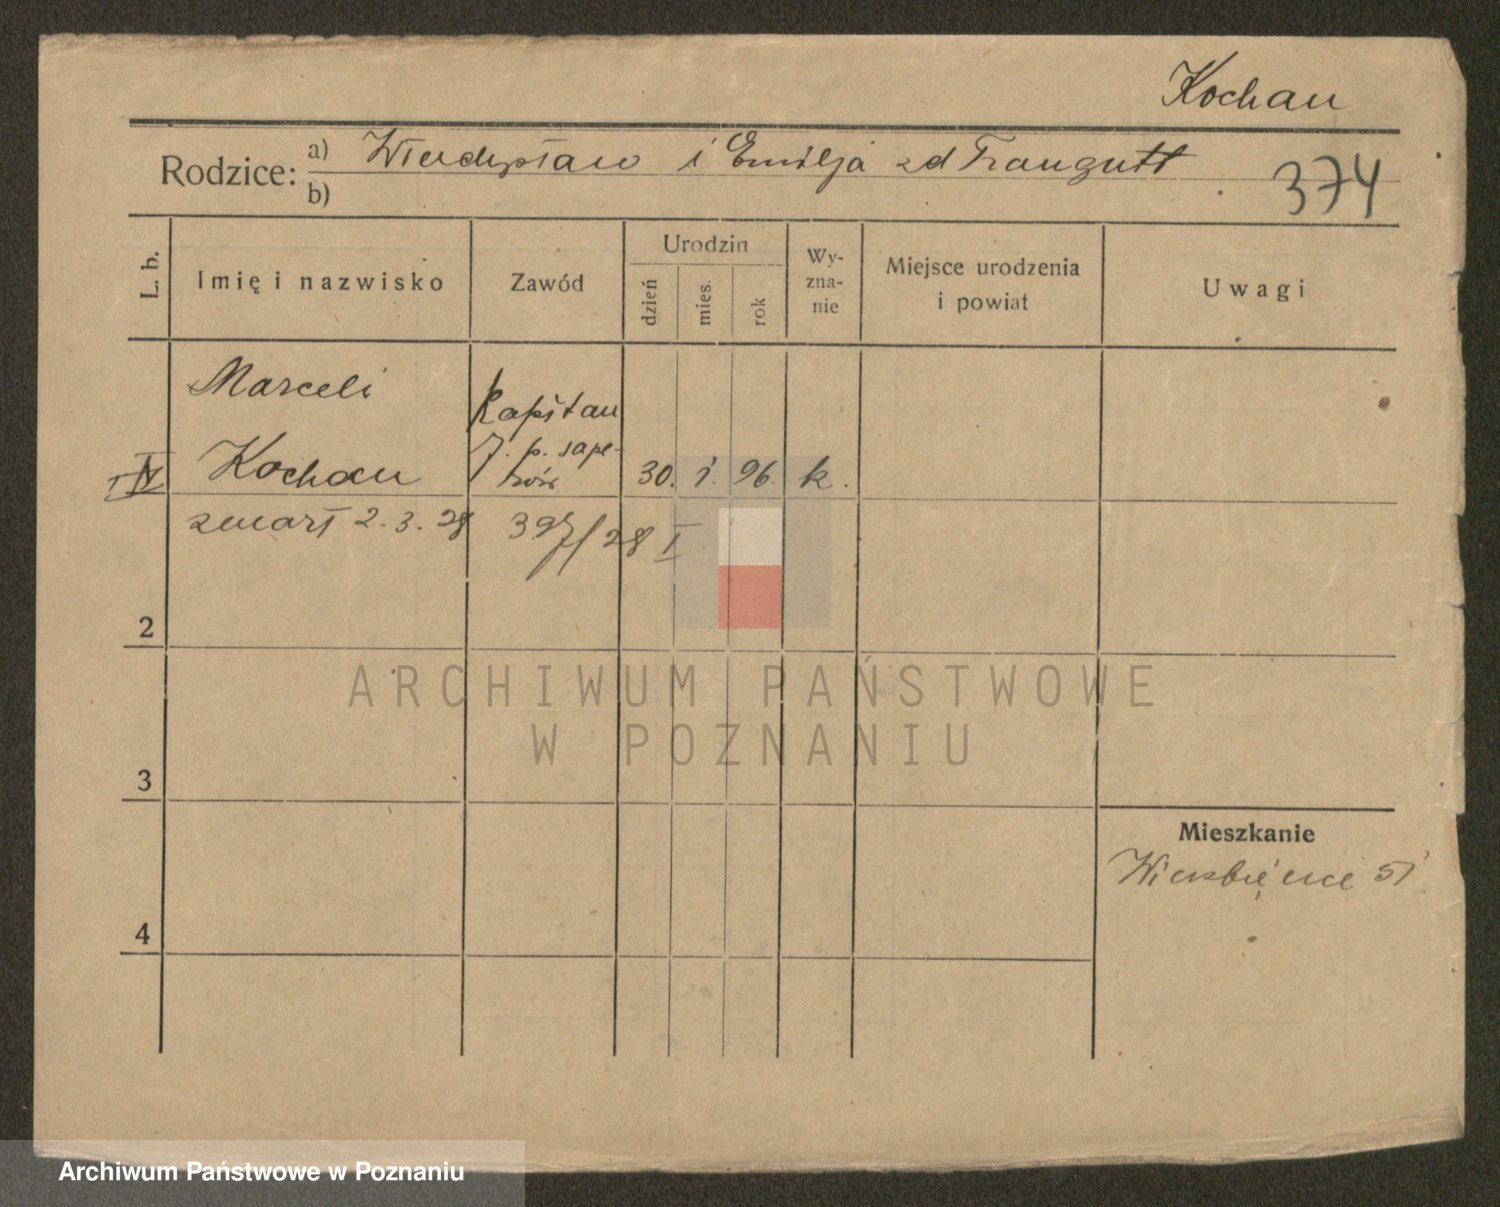 Kochan
Rodzice: a) Władysław i Emilja zd Traugutt
b)
374
L. b.
Imię i nazwisko
Zawód
Urodzin
dzień
mies.
rok
Wy-
zna-
nie
Miejsce urodzenia
i powiat
Uwagi
Marceli
Kapitan
7. p. sape-
IV Kochan rów 30. 1. 96. k.
zmarł 2.3.28 397/28 I
2
3
4
Mieszkanie
Wierzbięcice 51
ARCHIWUM PAŃSTWOWE
W POZNANIU
Archiwum Państwowe w Poznaniu